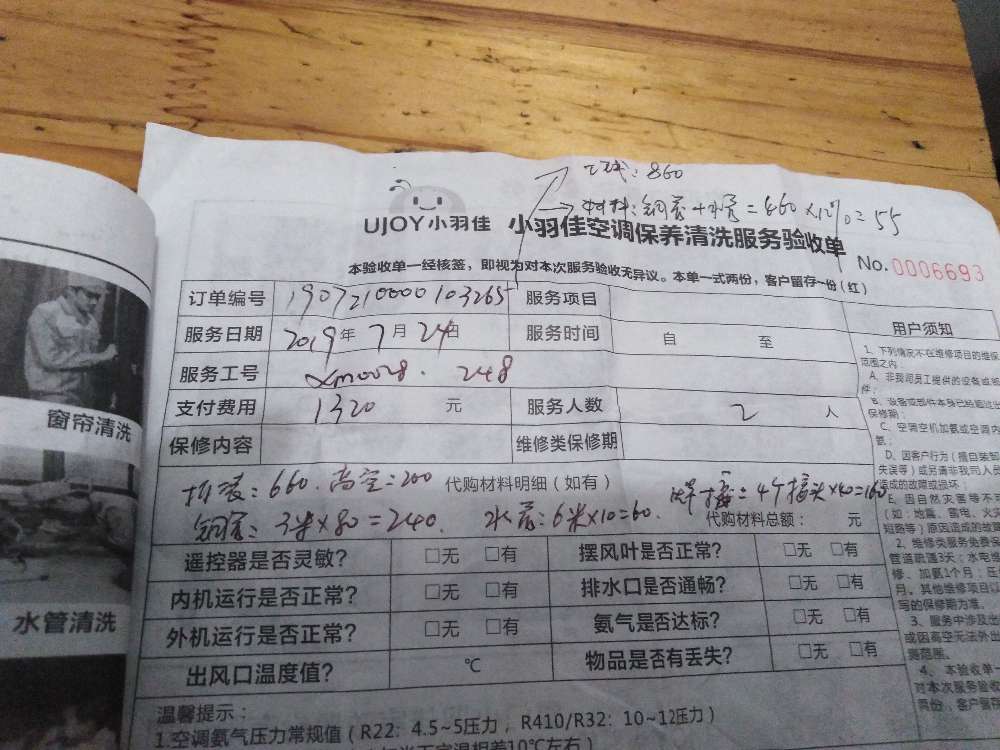 工钱：860
材料：铜管+水管=
×12%=55
UJOY小羽佳 小羽佳空调保养清洗服务验收单
No.0006693
本验收单一经核签，即视为对本次服务验收无异议。本单一式两份，客户留存一份（红）
订单编号 1907210000103265 服务项目
服务日期 2019年7月24日 服务时间 自 至
服务工号 xm0028.248
支付费用 1320 元 服务人数 2 人
保修内容 维修类保修期
拆装：660.高空：200 代购材料明细（如有） 焊接：4个接头×40=160
铜管：3米×80=240. 水管：6米×10=60. 代购材料总额： 元
遥控器是否灵敏？ □无 □有 摆风叶是否正常？ □无 □有
内机运行是否正常？ □无 □有 排水口是否通畅？ □无 □有
外机运行是否正常？ □无 □有 氨气是否达标？ □无 □有
出风口温度值？ ℃ 物品是否有丢失？ □无 □有
温馨提示：
1.空调氨气压力常规值（R22：4.5~5压力，R410/R32：10~12压力）
温相差10℃左右）
用户须知
1、下列情况不在维修项目的维保
范围之内：
A、非我司员工提供的设备或
件；
B、设备或部件本身已经超过
保修期；
C、空调空机加氨或空调内
氨；
D、因客户行为（擅自装卸
失误等）或另请非我司人员
造成的故障或损坏；
E、因自然灾害等不
（如：地震、雷电、火
短路等）原因造成的故
2、维修类服务免费保
管道疏通3天；水电维
修、加氨1个月；压
月。其他维修项目以
写的保修期为准。
3、服务中涉及出
或因高空无法外出
范围。
4、本验收单
对本次服务验收
两份，客户留存
窗帘清洗
水管清洗